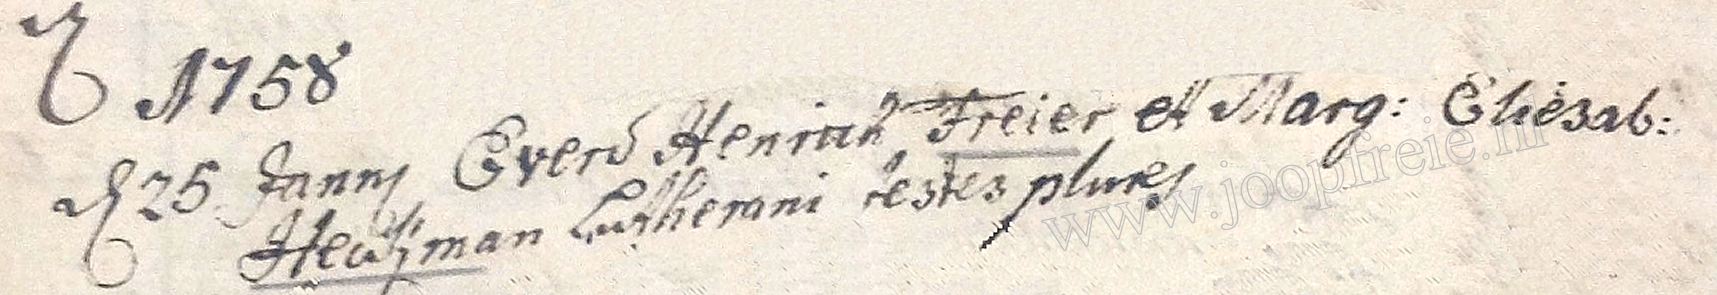 1758
d 25 Janny Everd Henrich Freier et Marg: Eliesab:
Lutherani testes plures
www.joopfreie.nl